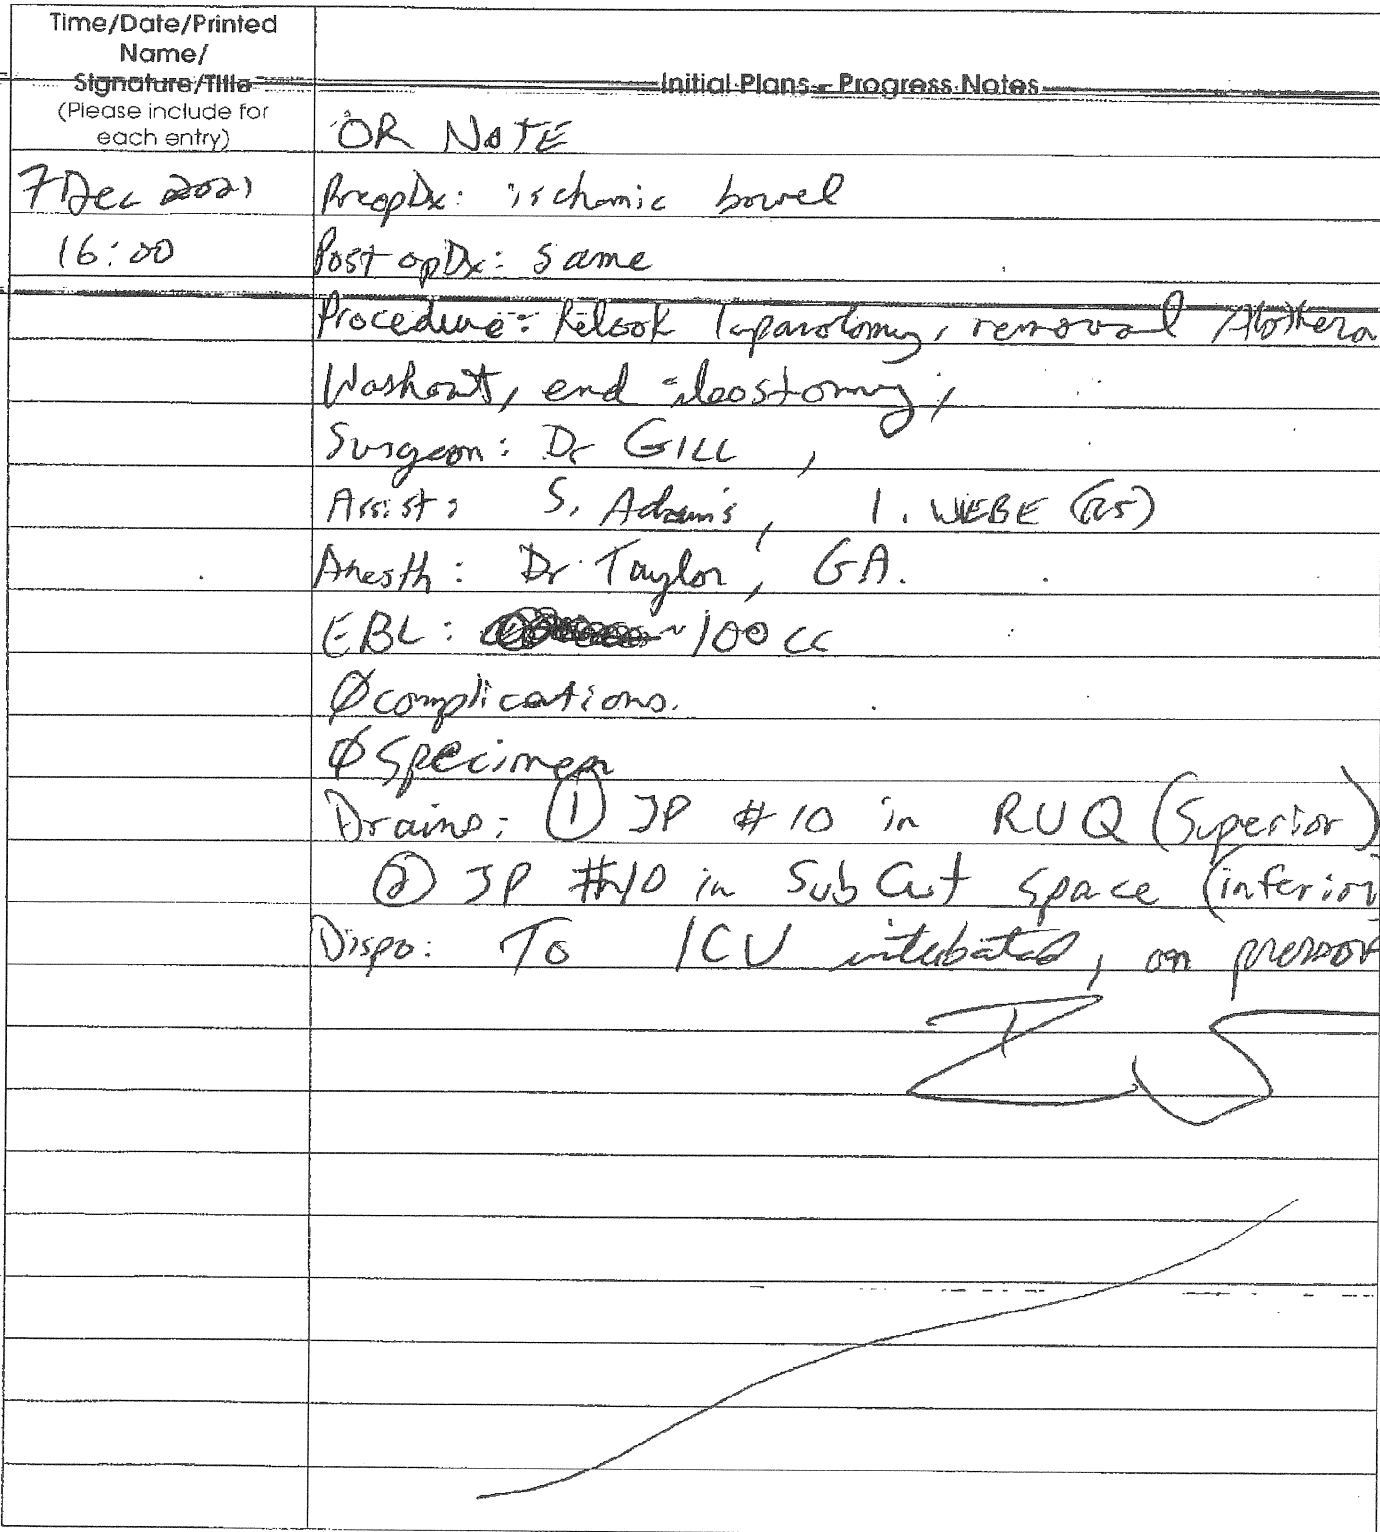 Time/Date/Printed
Name/
Signature/Title
(Please include for
each entry)
Initial Plans – Progress Notes
OR NOTE
7 Dec 2021
PreopDx: ischemic bowel
16:00
Post opDx: same
Procedure: Relook laparotomy, removal Abthera
Washout, end ileostomy,
Surgeon: Dr GILL,
Assist: S. Adams, I. WEBE (R5)
Anesth: Dr Taylor, GA.
EBL: ~100 cc
Ø complications.
Ø Specimen
Drains: ① JP #10 in RUQ (Superior)
② JP #10 in SubCut Space (inferior
Dispo: To ICU intubated, on pressor